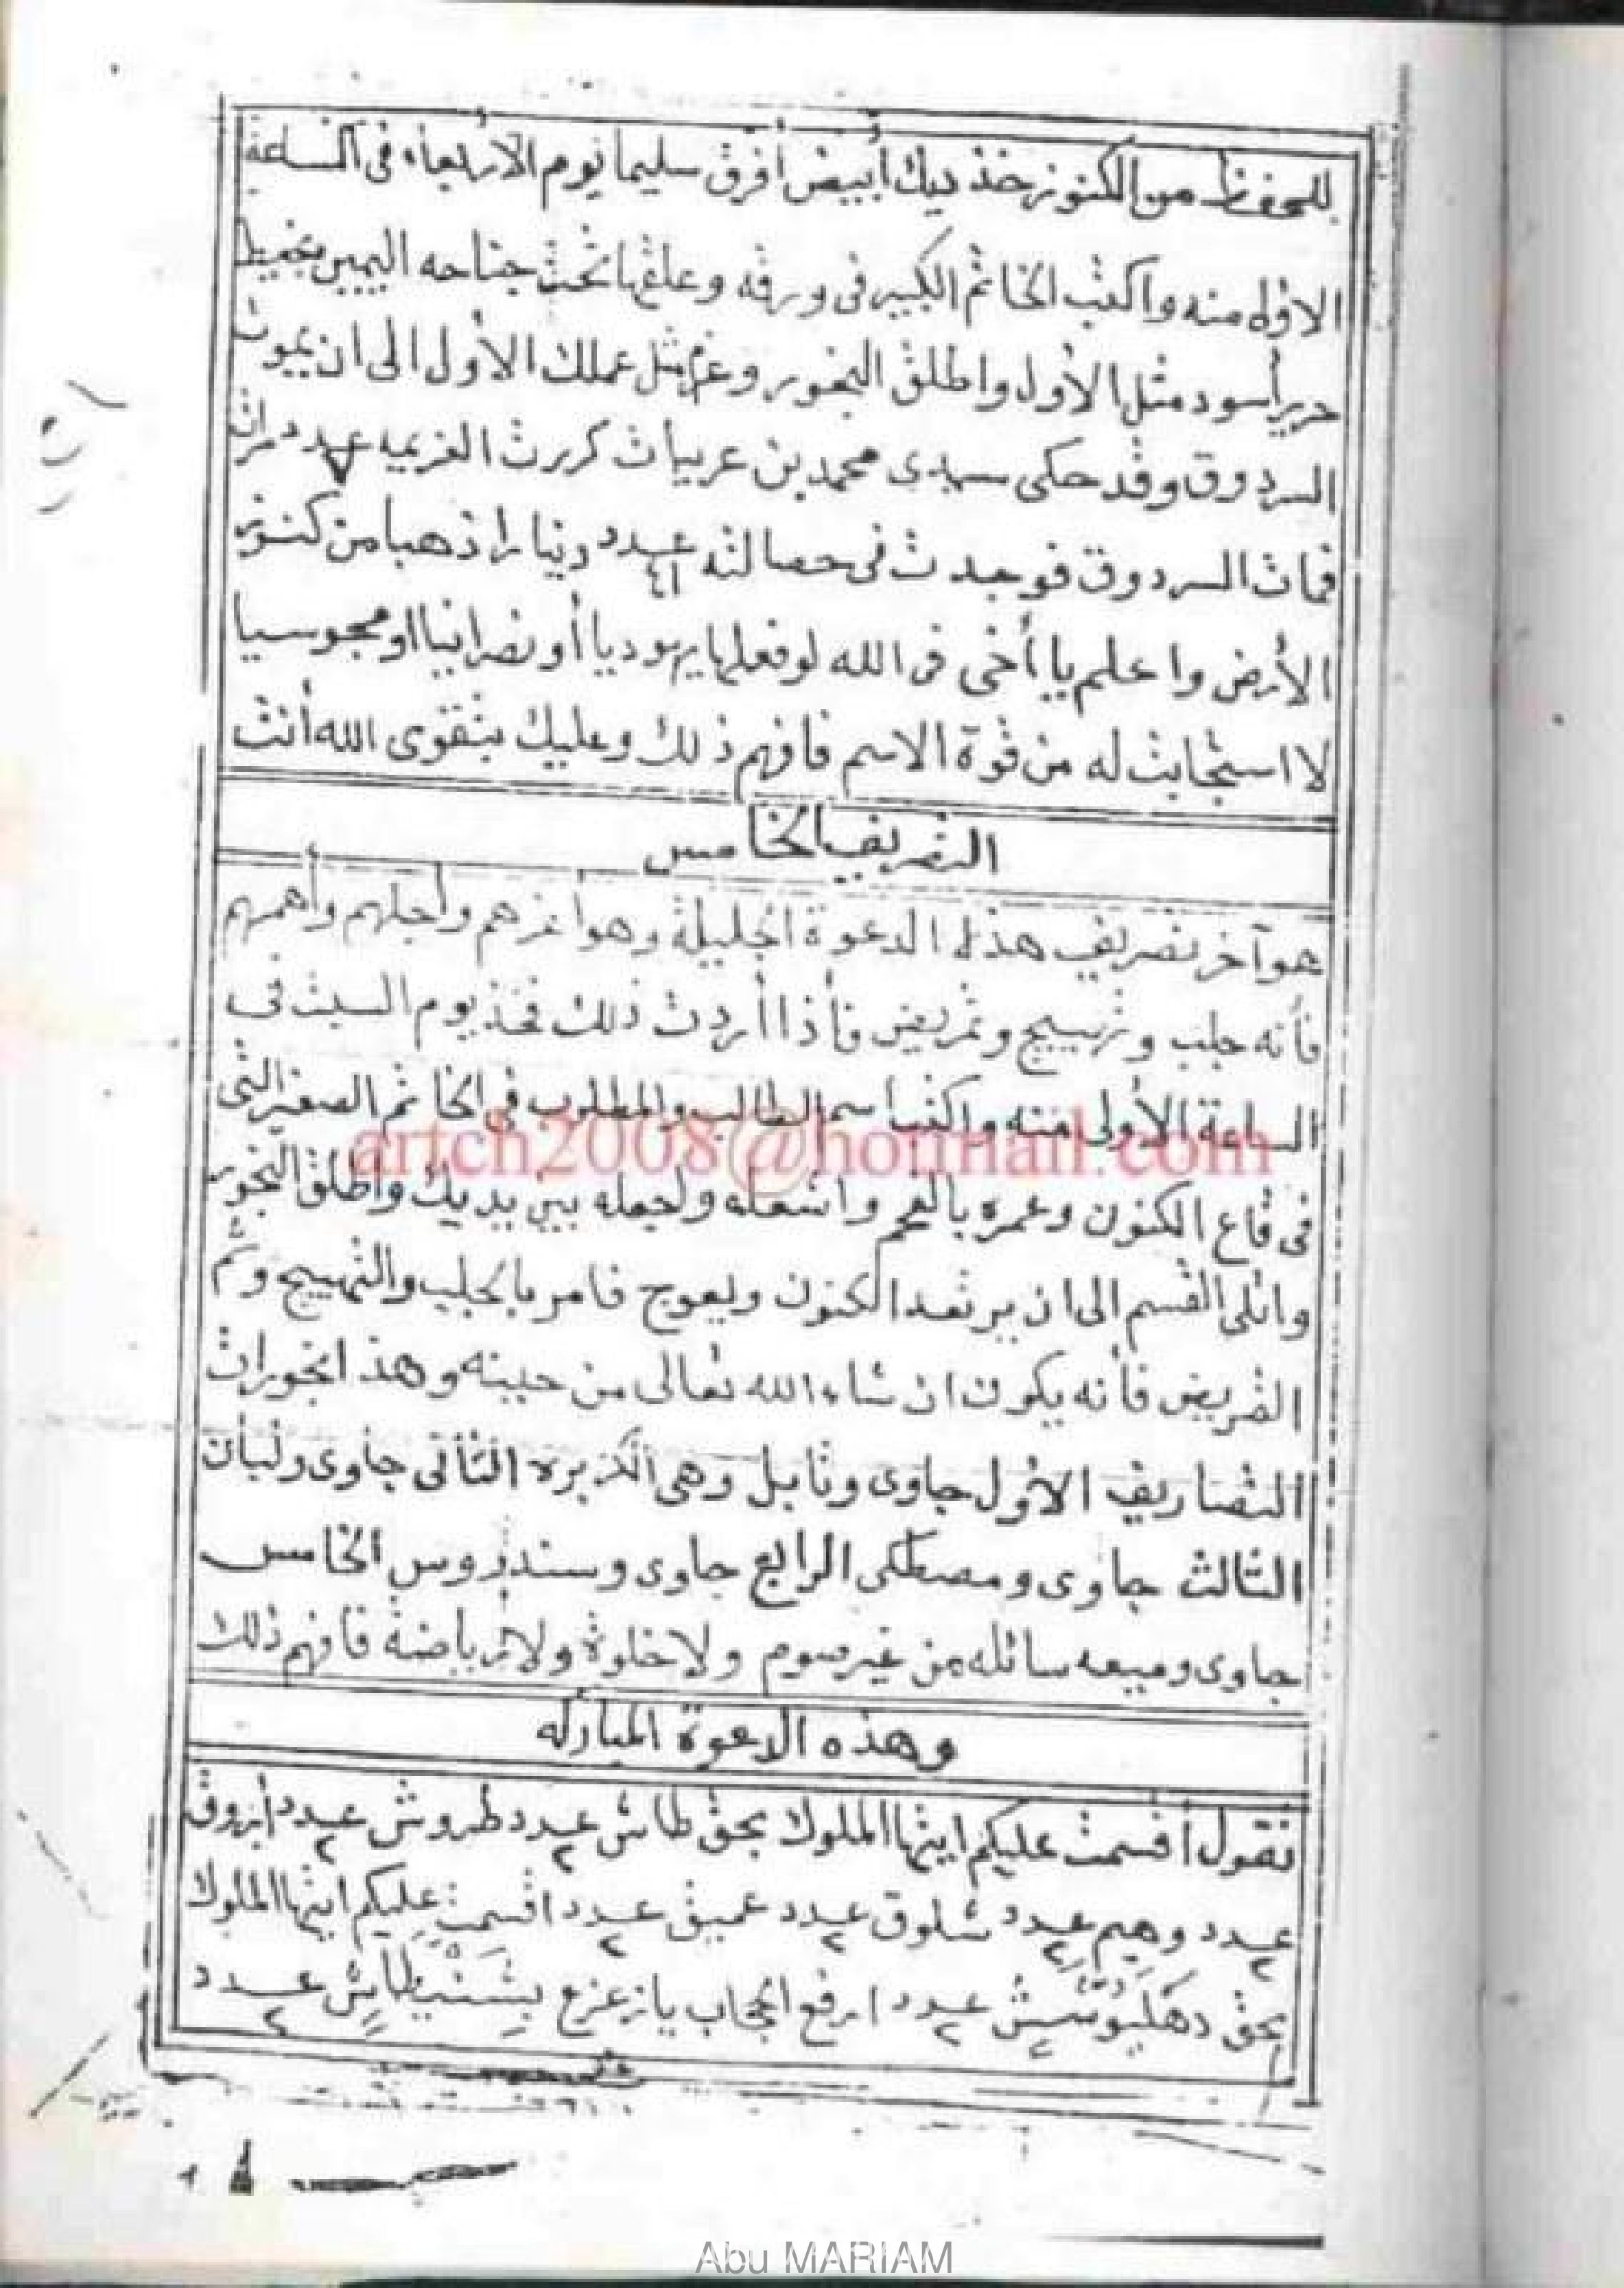 للحفظ من الكنوز خذ ديك أبيض أفرق سليما يوم الأربعاء فى الساعة
الاولى منه واكتب الخاتم الكبير فى ورقه وعلقها تحت جناحه اليمين بخيط
حرير أسود مثل الأول واطلق البخور وعزم مثل عملك الأول الى ان يموت
السردوق وقد حكى سيدى محمد بن عربيات كررت العزيمه عدد ٧ مرات
فمات السردوق فوجدت فى حصالته عدد ٤١ دينارا ذهبا من كنوز
الأرض واعلم يا أخى فى الله لو فعلها يهوديا أو نصرانيا او مجوسيا
لا استجابت له من قوة الاسم فافهم ذلك وعليك بتقوى الله أنت
التصريف الخامس
هو آخر تصريف هذه الدعوة الجليلة وهو أعزهم وأجلهم وأهمهم
فأنه جلب وتهييج وتمريض فأذا أردت ذلك فخذ يوم السبت فى
الساعة الأولى منه واكتب اسم الطالب والمطلوب فى الخاتم الصغير التى
artch2008@hotmail.com
فى قاع الكنون وعمره بالفحم واشعله واجعله بين يديك واطلق البخور
واتلى القسم الى ان يرتعد الكنون ويعوج فامر بالجلب والتهييج وثم
التمريض فأنه يكون ان شاء الله تعالى من حينه وهذ ابخورات
التصاريف الاول جاوى وتابل وهى الكزبره الثانى جاوى ولبان
الثالث جاوى ومصطكى الرابع جاوى وسندروس الخامس
جاوى وميعه سائله من غير صوم ولا خلوة ولا رياضة فافهم ذلك
وهذه الدعوة المباركه
تقول أقسمت عليكم ايتها الملوك بحق طاش عدد ٢ طروش عدد ٢ أزروق
عدد ٢ وهيم عدد ٢ شلوق عدد ٢ عميق عدد ٢ اقسمت عليكم ايتها الملوك
بحق عدد ٢ ارفع الحجاب يا زعزع عدد ٢
Abu MARIAM